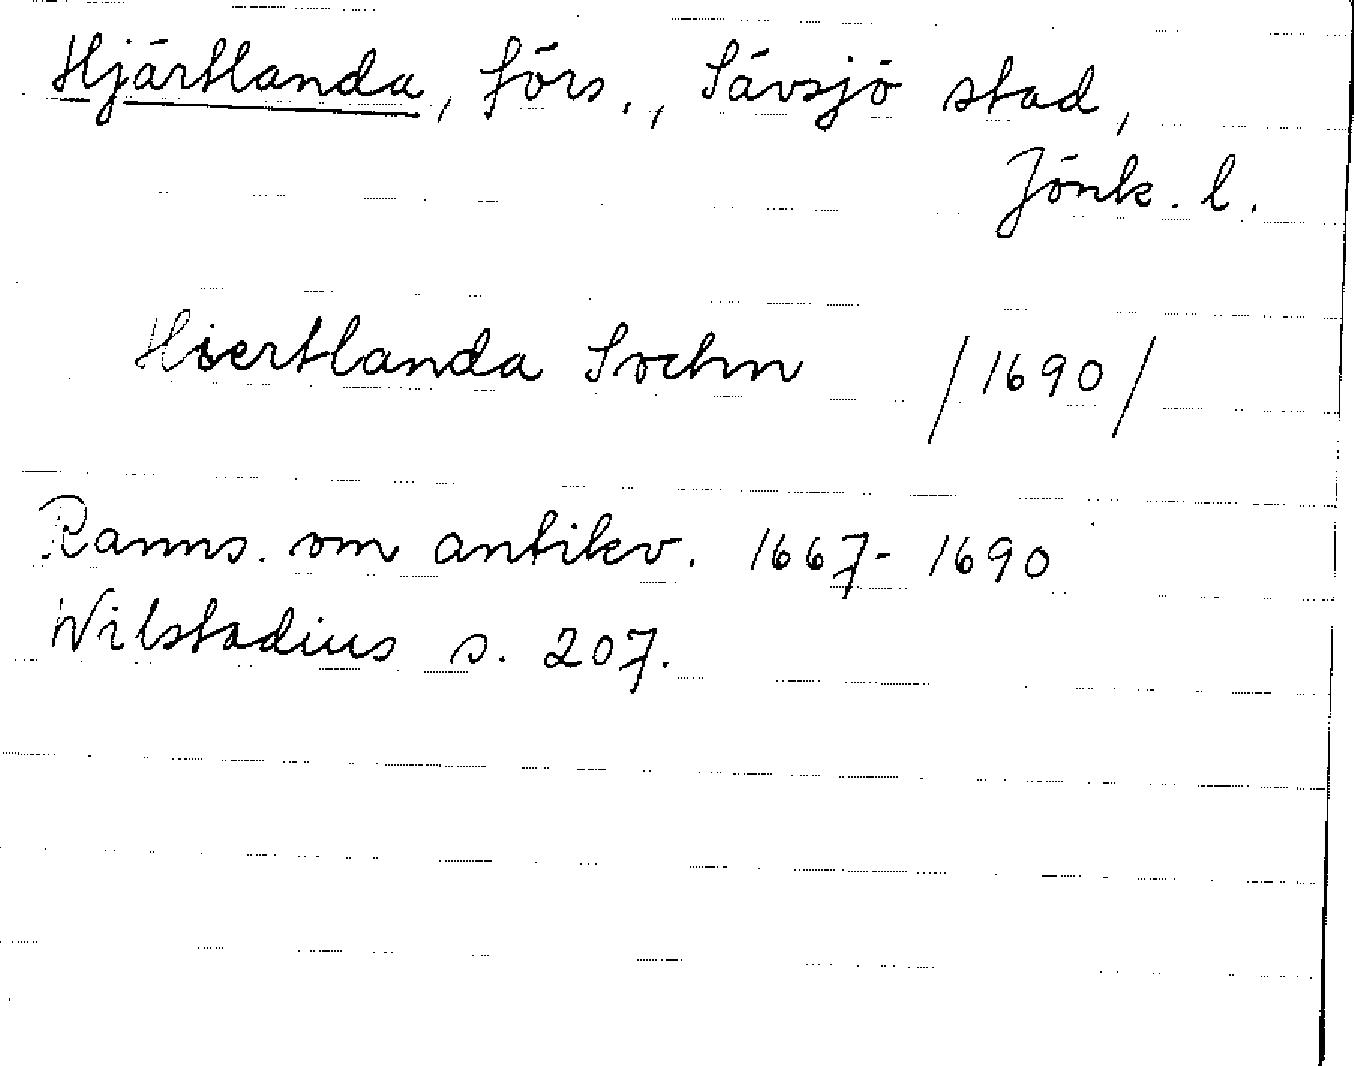 Hjärtlanda, förs., Sävsjö stad,
Jönk. l.
Hiertlanda Sochn /1690/
Ranns. om antikv. 1667-1690
Wilstadius s. 207.